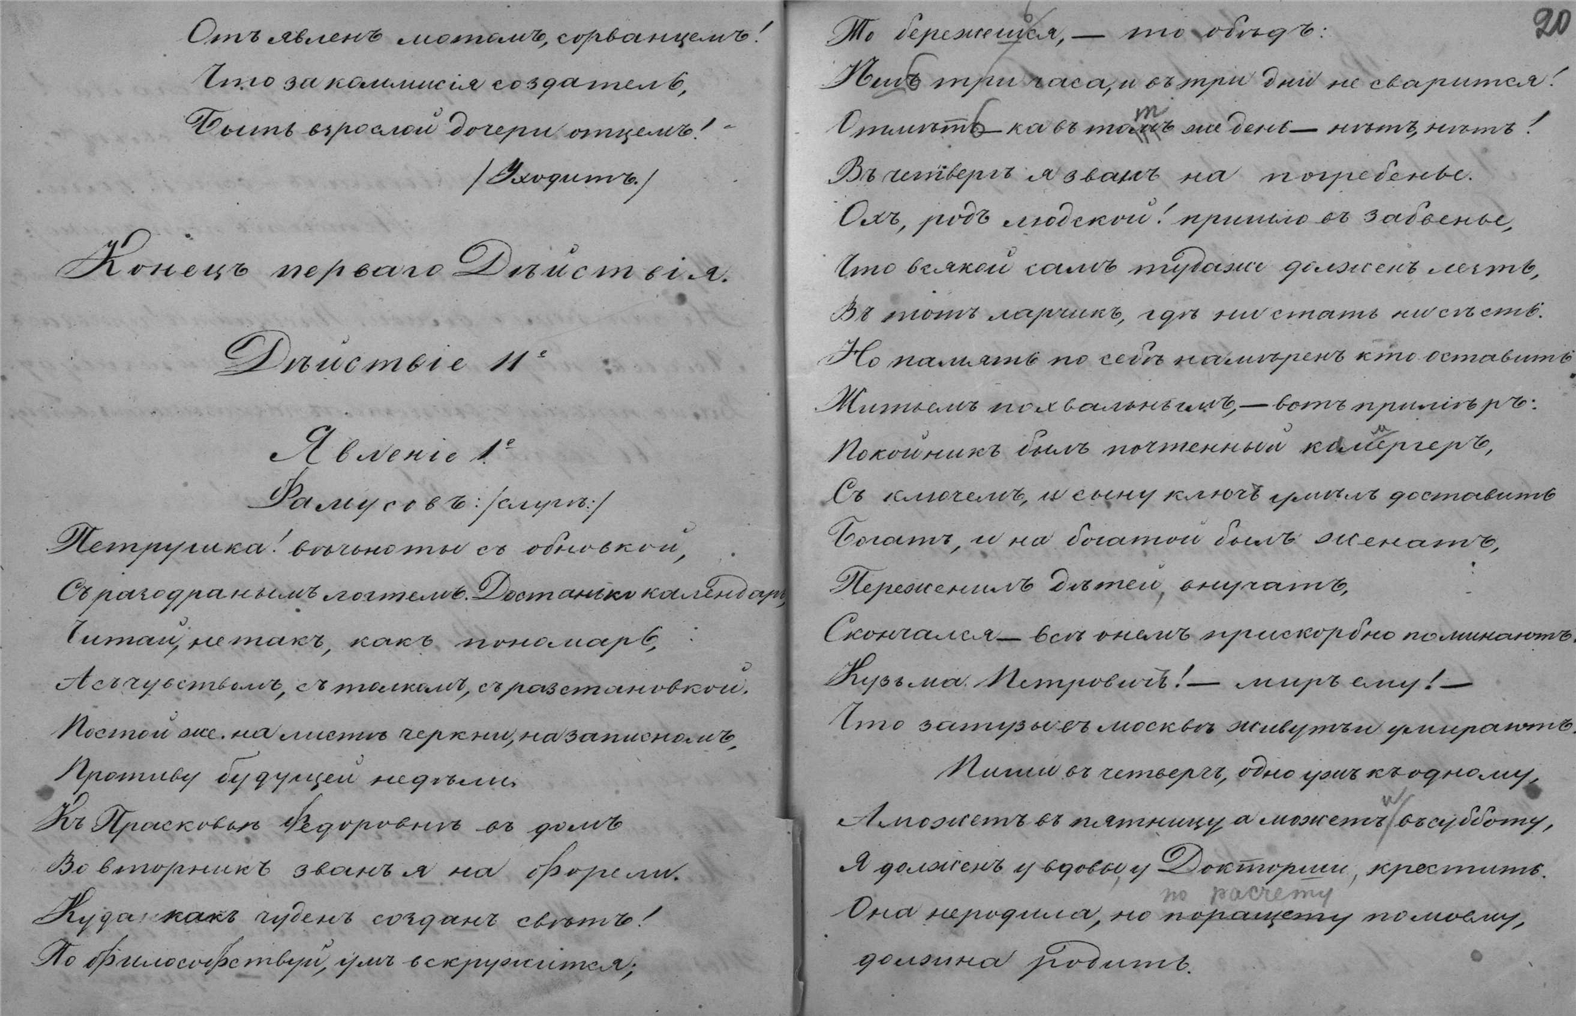 Отъявленъ мотомъ, сорванцемъ!
Что за коммисія создатель,
Быть взрослой дочери отцемъ!
/Уходитъ./
Конецъ перваго Дѣйствія.
Дѣйствіе 11е
Явленіе 1е
Фамусовъ: /слугѣ:/
Петрушка! вѣчно ты съ обновкой,
Съ разодранымъ локтемъ. Достанько календарь,
Читай, не такъ, какъ пономарь,
А съ чувствомъ, съ толкомъ, съ разстановкой.
Постой же. на листѣ черкни, на записномъ,
Противу будущей недѣли.
Къ Прасковьѣ Федоровнѣ въ домъ
Во вторникъ званъ я на форели.
Куда какъ чуденъ созданъ свѣтъ!
По философствуй, умъ вскружится;
20
То бережешся, — то обѣдъ:
Ешь три часа, и въ три дни не сварится!
Отмѣть-ка въ томъ же день — нѣтъ, нѣтъ!
т
Въ четвергъ я званъ на погребенье.
Охъ, родъ людской! пришло въ забвенье,
Что всякой самъ туда же долженъ лезть,
Въ тотъ ларчикъ, гдѣ ни стать ни сѣсть.
Но память по себѣ намѣренъ кто оставить
Житьемъ похвальнымъ, — вотъ примѣръ:
Покойникъ былъ почтенный камергеръ,
Съ ключемъ, и сыну ключъ умѣлъ доставить
Богатъ, и на богатой былъ женатъ,
Переженилъ дѣтей, внучатъ,
Скончался — всѣ о немъ прискорбно поминаютъ.
Кузьма Петровичъ! — миръ ему! —
Что за тузы въ москвѣ живутъ и умираютъ.
Пиши въ четвергъ, одно ужъ къ одному,
А можетъ въ пятницу а можетъ и въ субботу,
Я долженъ у вдовы, у Докторши, крестить.
по расчету
Она не родила, но поращету по моему,
должна родить.